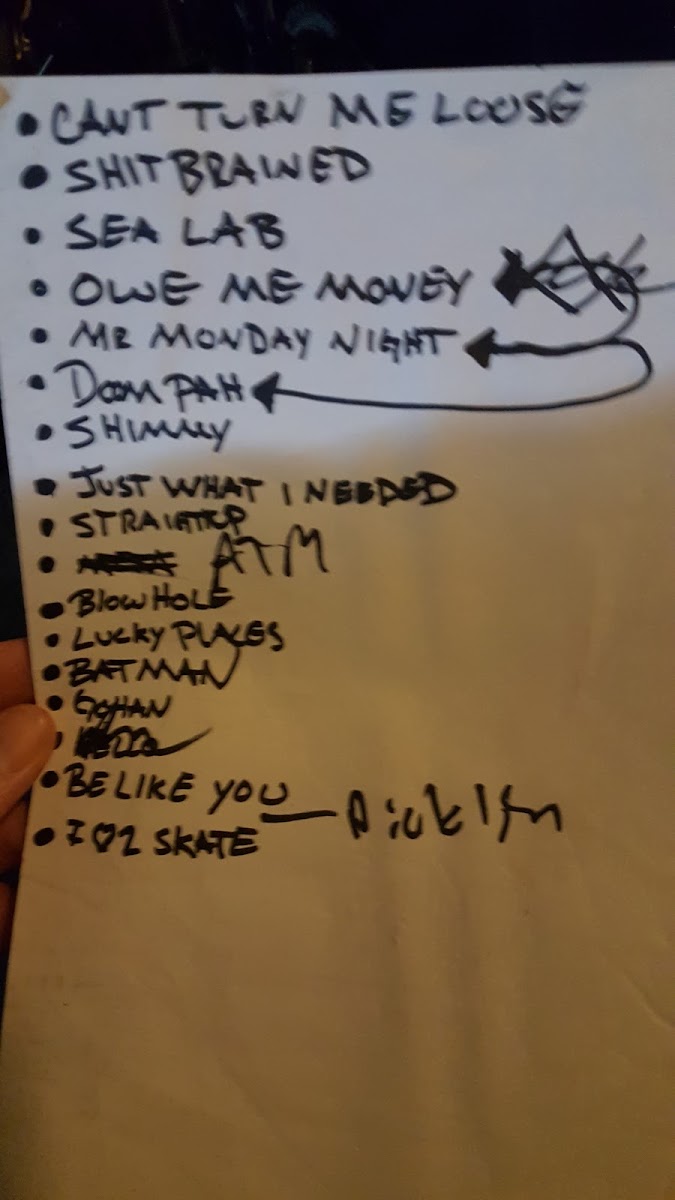 • CANT TURN ME LOOSE
• SHITBRAINED
• SEA LAB
• OWE ME MONEY
• MR MONDAY NIGHT
• DOOM PAH
• SHIMMY
• JUST WHAT I NEEDED
• STRAIGHT UP
• ATM
• BLOWHOLE
• LUCKY PLACES
• BATMAN
• GOHAN
• BE LIKE YOU
• I ♡ 2 SKATE